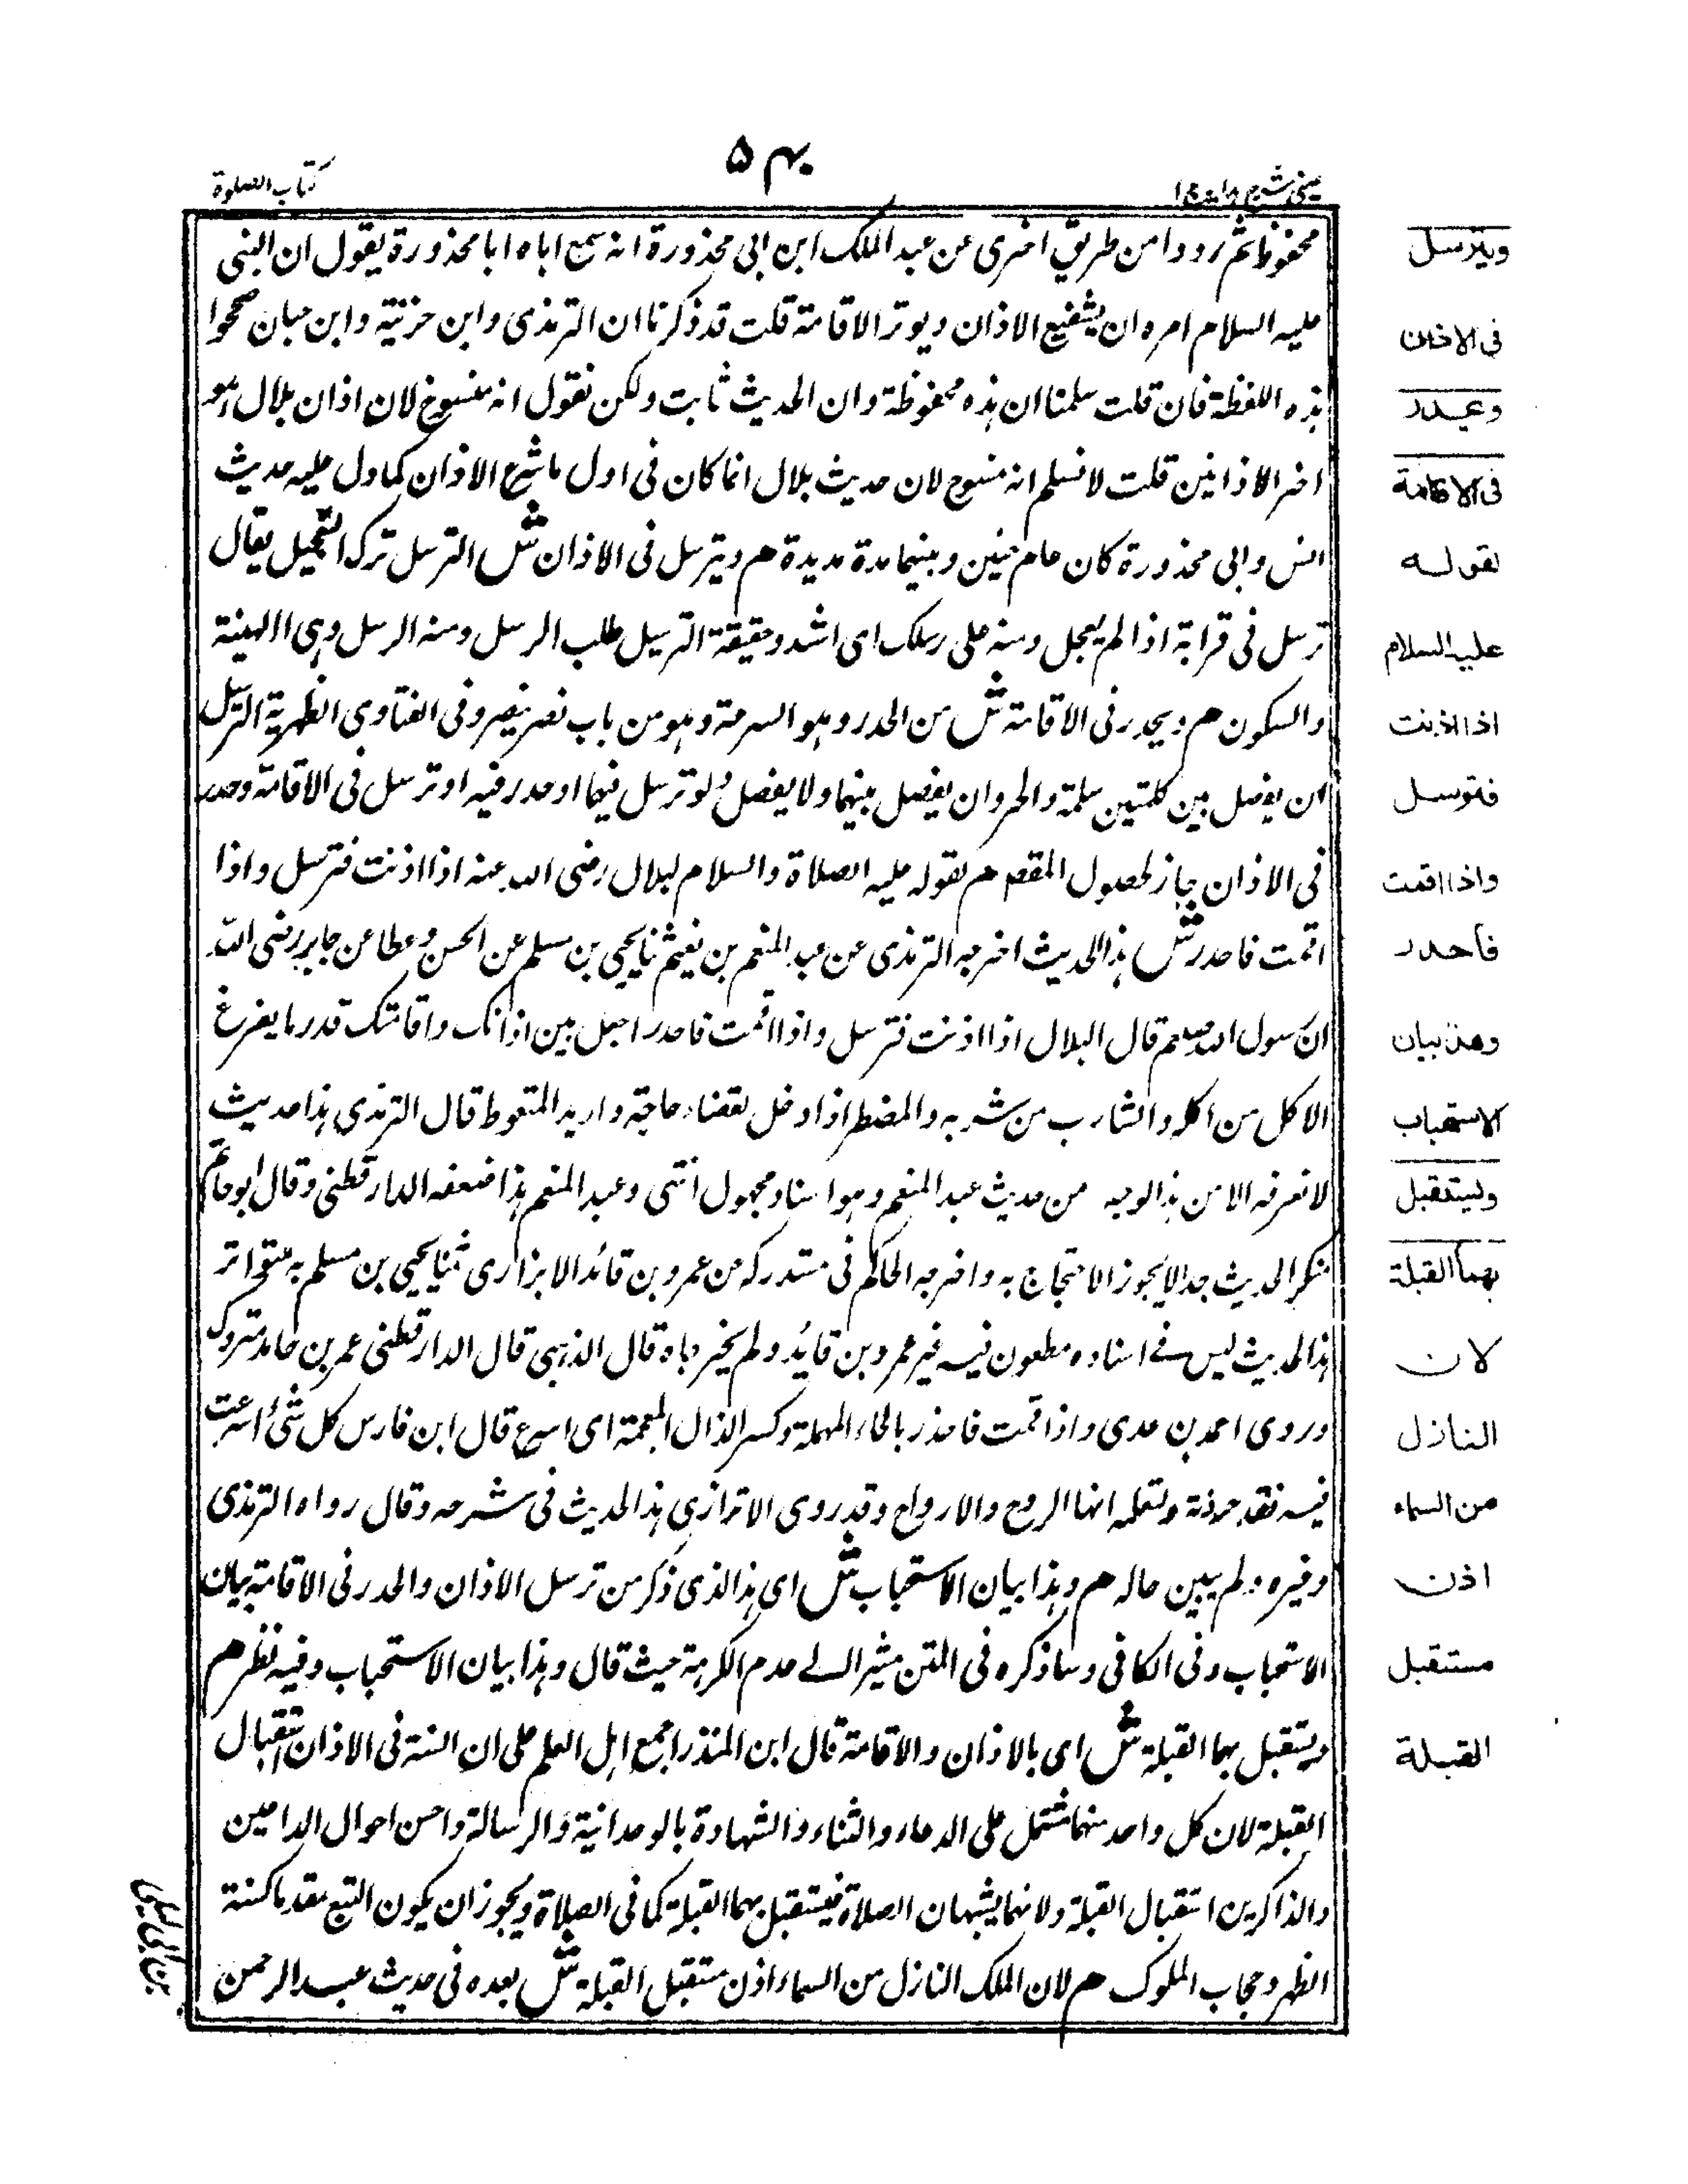 ۵۴۰
عینی شرح هدایه ج ۱
کتاب الصلوة
محفوظا ثم رووا من طریق اخری عن عبد الملک ابن ابی محذورة انه سمع اباه ابا محذورة یقول ان النبی
علیه السلام امره ان یشفیع الاذان ویوتر الاقامة قلت قد ذکرنا ان الترمذی وابن خزیمة وابن حبان صححوا
هذه اللفظة فان قلت سلمنا ان هذه محفوظة وان الحدیث ثابت ولکن نقول انه منسوخ لان اذان بلال هو
اخر الاذانین قلت لا نسلم انه منسوخ لان حدیث بلال انما کان فی اول ما شرع الاذان کما دل علیه حدیث
انس وابی محذورة کان عام حنین وبینهما مدة مدیدة هم ویترسل فی الاذان ش الترسل ترک التعجیل یقال
ترسل فی قراءبة اذا لم یعجل ومنه علی رسلک ای اشد وحقیقة الترسیل طلب الرسل ومنه الرسل وهی الهینة
والسکون هم ویحدر فی الاقامة ش من الحدر وهو السرعة وهو من باب نصر ینصر وفی الفتاوی الظهیریة الترسل
ان یفصل بین کلمتین سلمة والحر وان یفصل بینهما ولا یفصل ولو ترسل فیهما او حدر فیه او ترسل فی الاقامة وحدر
فی الاذان جاز لحصول المقصم هم لقوله علیه الصلاة والسلام لبلال رضی الله عنه اذا اذنت فترسل واذا
اقمت فاحدر ش هذا الحدیث اخرجه الترمذی عن عبد المنعم بن نعیم ثنا یحیی بن مسلم عن الحسن وعطا عن جابر رضی الله
ان رسول الله صلعم قال البلال اذا اذنت فترسل واذا اقمت فاحدر اجعل بین اذانک واقامتک قدر ما یفرغ
الاکل من اکله والشارب من شربه والمضطر اذا دخل لقضاء حاجته وارید المتغوط قال الترمذی هذا حدیث
لا نعرفه الا من هذا الوجه من حدیث عبد المنعم وهو اسناد مجهول انتهی وعبد المنعم هذا ضعفه الدارقطنی وقال ابو حاتم
منکر الحدیث جدا لا یجوز الاحتجاج به واخرجه الحاکم فی مستدرکه من عمرو بن قائد الابزاری ثنا یحیی بن مسلم به متواتر
هذا الحدیث لیس فی اسناده مطعون فیه غیر عمرو بن قائد ولم یخرجاه قال الذهبی قال الدارقطنی عمر بن حامد متروک
وروی احمد بن عدی واذا قمت فاحذر بالحاء المهملة وکسر الذال المعجمة ای اسرع قال ابن فارس کل شئ اسرعت
فیه فقد حذفته انها الروح والارواح وقد روی الاترازی هذا الحدیث فی شرحه وقال رواه الترمذی
وغیره ولم یبین حاله هم وهذا بیان الاستحباب ش ای هذا الذی ذکر من ترسل الاذان والحدر فی الاقامة بیان
الاستحباب وفی الکافی وما ذکره فی المتن مشیر الی عدم الکرهة حیث قال وهذا بیان الاستحباب وفیه نظر هم
ویستقبل بهما القبلة ش ای بالاذان والاقامة قال ابن المنذر اجمع اهل العلم علی ان السنة فی الاذان استقبال
القبلة لان کل واحد منهما مشتمل علی الدعاء والثناء والشهادة بالوحدانیة والرسالة واحسن احوال الداعین
والذاکرین استقبال القبلة ولانهما یشبهان الصلاة فیستقبل بهما القبلة کما فی الصلاة ویجوز ان یکون التبع مقدما کسنة
الظهر وحجاب الملوک هم لان الملک النازل من السماء اذن مستقبل القبلة ش بعده فی حدیث عبد الرحمن
ویترسل
فی الاذان
ویحدر
فی الاقامة
لقوله
علیه السلام
اذا اذنت
فترسل
واذا اقمت
فاحدر
وهذا بیان
الاستحباب
ویستقبل
بهما القبلة
لان
النازل
من السماء
اذن
مستقبل
القبلة